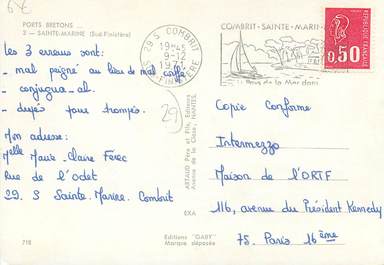 6€
PORTS BRETONS ...
3 — SAINTE-MARINE (Sud-Finistère)
Les 3 erreurs sont:
- mal peigné au lieu de mal coiffé
- conjugua-al.
- dupés pour trompés.
Mon adresse:
Melle Marie-Claire Férec
Rue de l'Odet
29. S Sainte. Marine. Combrit
718
29 S. COMBRIT
19-45
9-2
1974
FINISTERE
29
COMBRIT-SAINTE-MARINE
ARTAUD Père et Fils, Editeurs
Avenue de la Close, NANTES.
EXA
Editions "GABY"
Marque déposée
0,50
Copie Conforme
Intermezzo
Maison de l'ORTF
116, avenue du Président Kennedy
75. Paris 16ème